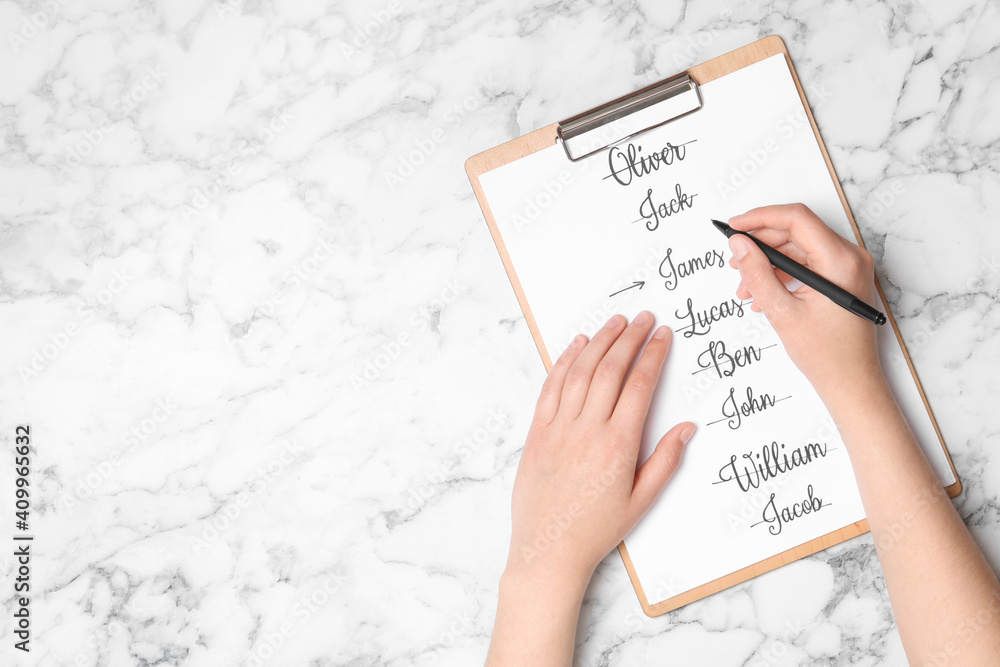 Oliver
Jack
→ James
Lucas
Ben
John
William
Jacob
Adobe Stock | #409965632